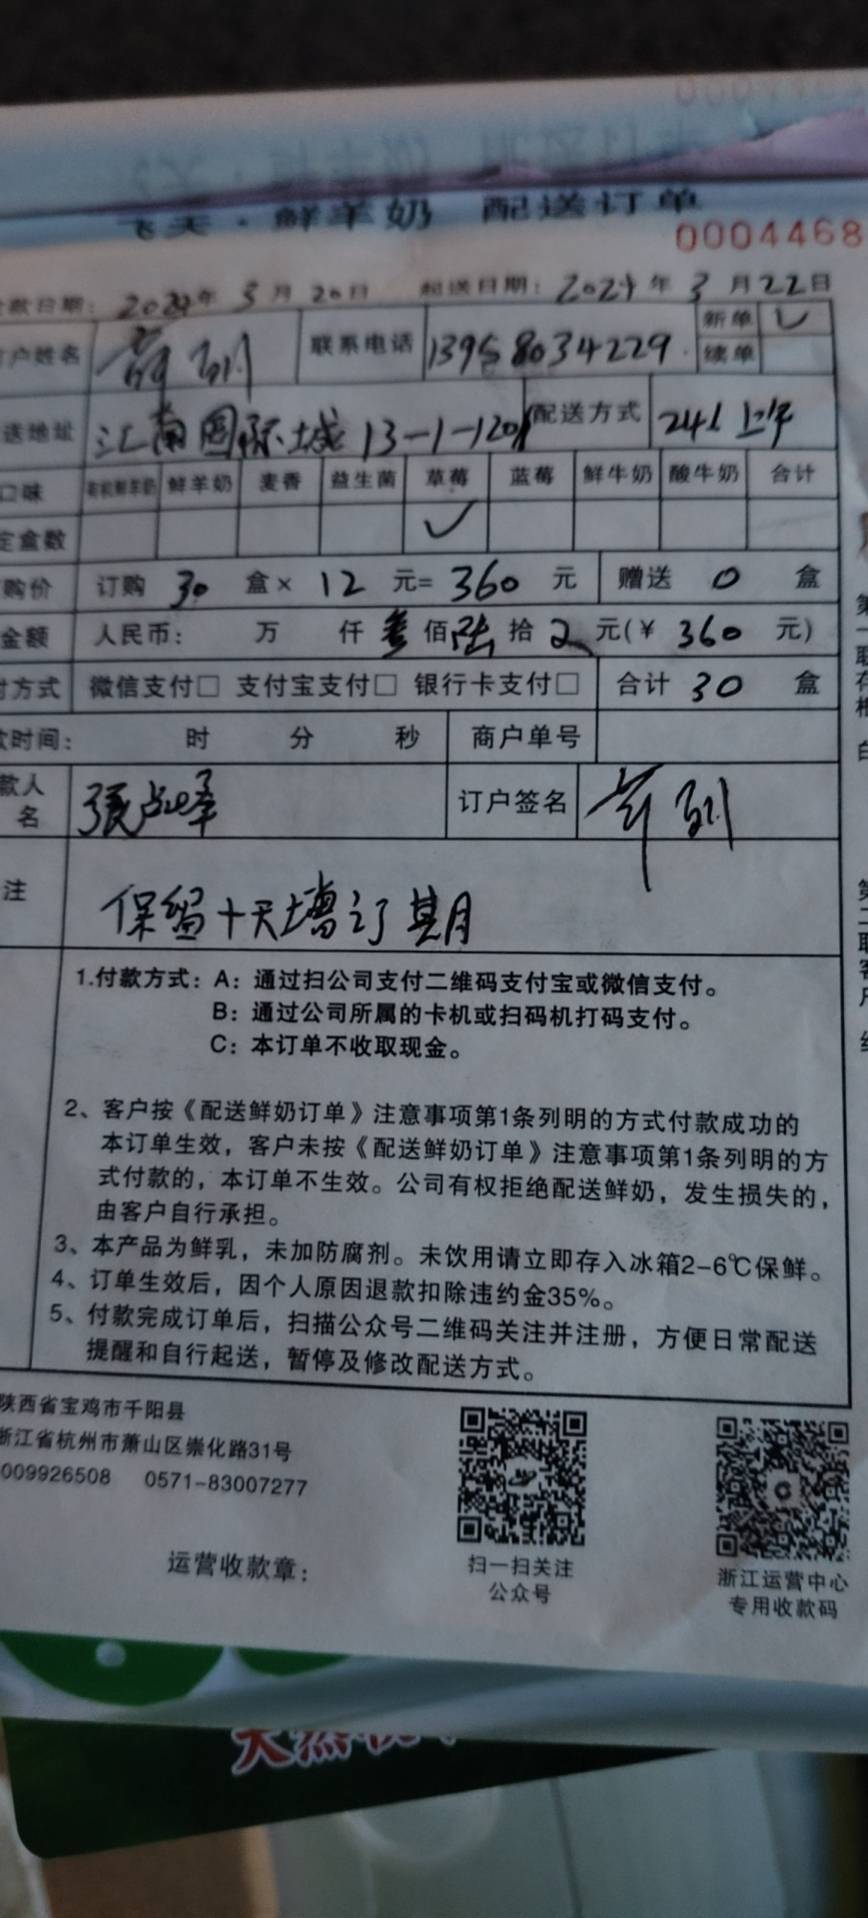 飞天·鲜羊奶 配送订单
0004468
款日期: 2024年3月20日 起送日期: 2024年3月22日
户姓名 联系电话 13958034229 新单 ✓
续单
送地址 江南国际城 13-1-1201 配送方式 上午
口味 有机鲜羊奶 鲜羊奶 麦香 益生菌 草莓 蓝莓 鲜牛奶 酸牛奶 合计
定盒数 ✓
购价 订购 30 盒× 12 元= 360 元 赠送 0 盒
金额 人民币: 万 仟 叁 佰 陆 拾 元(¥ 360 元)
付方式 微信支付□ 支付宝支付□ 银行卡支付□ 合计 30 盒
款时间: 时 分 秒 商户单号
款人
名 订户签名
注 保留十天增订其月
1.付款方式: A: 通过扫公司支付二维码支付宝或微信支付。
B: 通过公司所属的卡机或扫码机打码支付。
C: 本订单不收取现金。
2、客户按《配送鲜奶订单》注意事项第1条列明的方式付款成功的
本订单生效,客户未按《配送鲜奶订单》注意事项第1条列明的方
式付款的,本订单不生效。公司有权拒绝配送鲜奶,发生损失的,
由客户自行承担。
3、本产品为鲜乳,未加防腐剂。未饮用请立即存入冰箱2-6℃保鲜。
4、订单生效后,因个人原因退款扣除违约金35%。
5、付款完成订单后,扫描公众号二维码关注并注册,方便日常配送
提醒和自行起送,暂停及修改配送方式。
陕西省宝鸡市千阳县
浙江省杭州市萧山区崇化路31号
009926508 0571-83007277
运营收款章:
扫一扫关注
公众号
浙江运营中心
专用收款码
天然